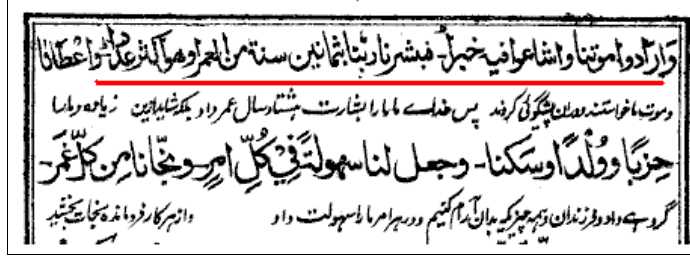 وارادوا موتنا واشاعوا فيه خبرا۔ فبشرنا ربنا بثمانين سنة من العمر او هو اكثر عددا۔ واعطانا
وموت ما خواستند و دران پیشگوئی کردند پس خدائے ما مارا بشارت هشتاد سال عمر داد بلکه شاید ازین زیاده و مارا
حِزبًا وَوُلْدًا وسكنا۔ وجعل لنا سهولةً في كُلِّ امرٍ۔ ونجّانا مِن كلّ غَمَر۔
گروہے داد و فرزندان و ہمہ چیز کہ بدان آرام کنیم و در ہر امر مارا سہولت داد و از ہر کار فرو ماندہ نجات بخشید